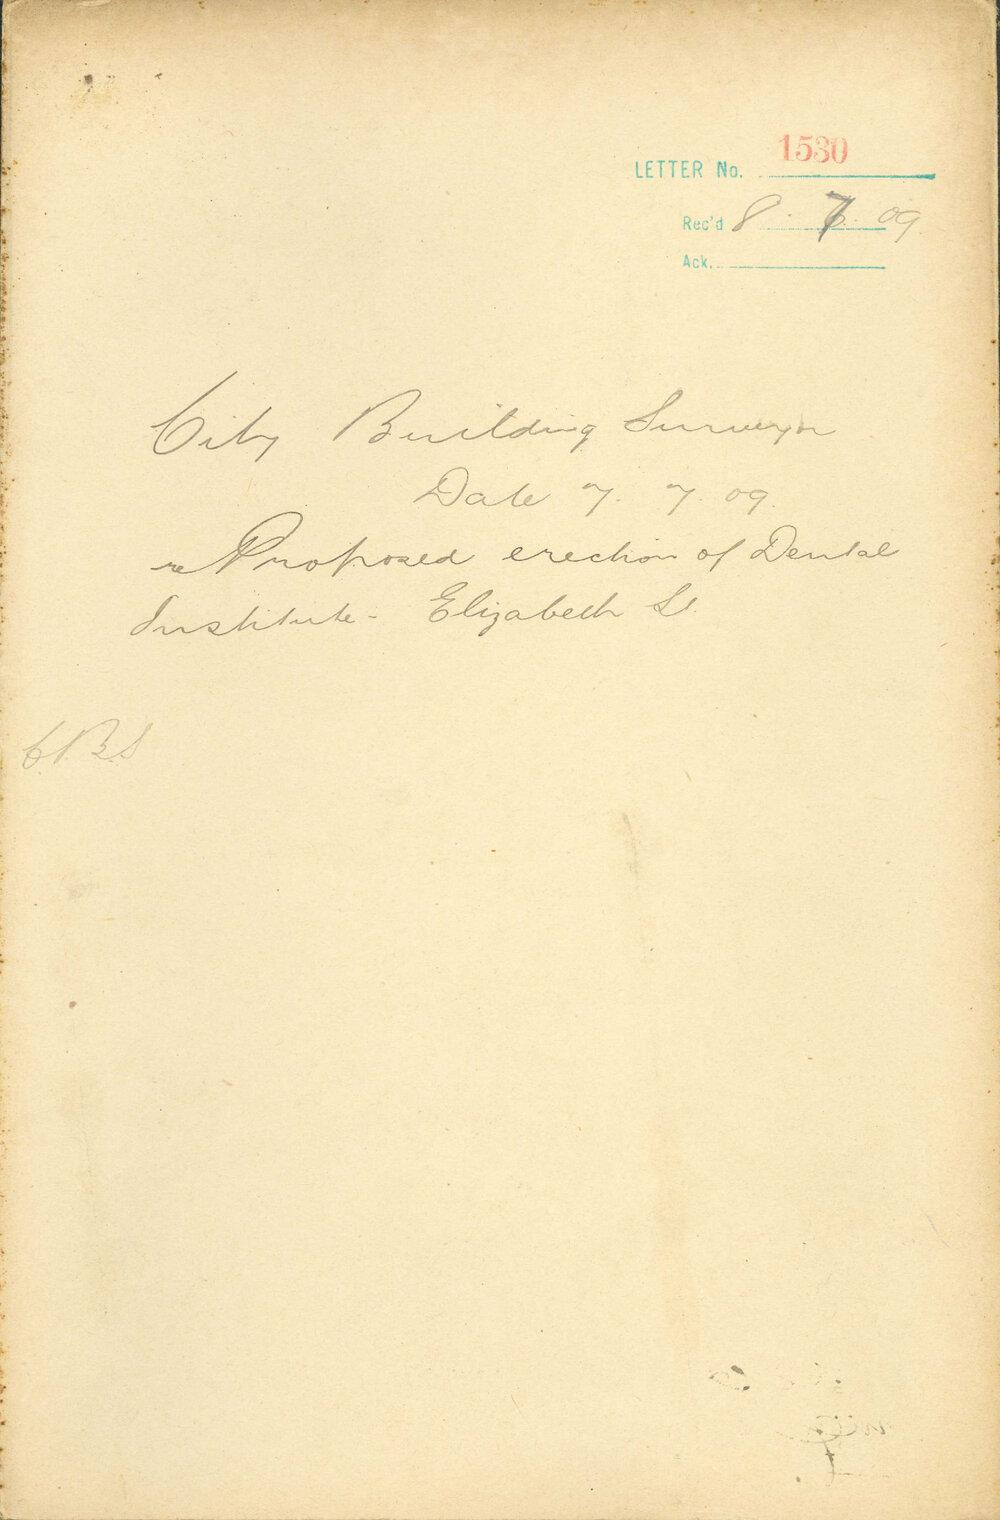 LETTER No. 1530
Rec'd 8. 7. 09
Ack.
City Building Surveyor
Date 7. 7. 09.
re Proposed erection of Dental
Institute - Elizabeth St.
C.B.S